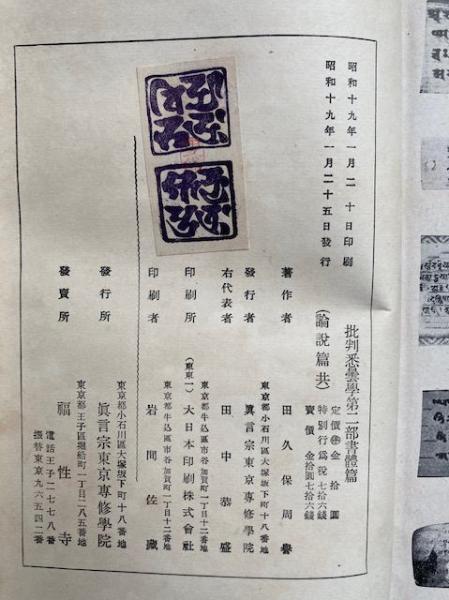 昭和十九年一月二十日印刷
昭和十九年一月二十五日發行
批判悉曇學第二部書體篇
(論說篇共)
定價 金拾圓
特別行爲稅七十六錢
賣價 金拾圓七十六錢
著作者 田久保周譽
東京都小石川區大塚坂下町十八番地
發行者 眞言宗東京專修學院
右代表者 田中恭盛
東京都牛込區市谷加賀町一丁目十二番地
印刷所 (東東一) 大日本印刷株式會社
東京都牛込區市谷加賀町一丁目十二番地
印刷者 岩間佐藏
東京都小石川區大塚坂下町十八番地
發行所 眞言宗東京專修學院
東京都王子區堀船町一丁目二八五番地
發賣所 福性寺
電話王子二七七八番
振替東京九六五四二番